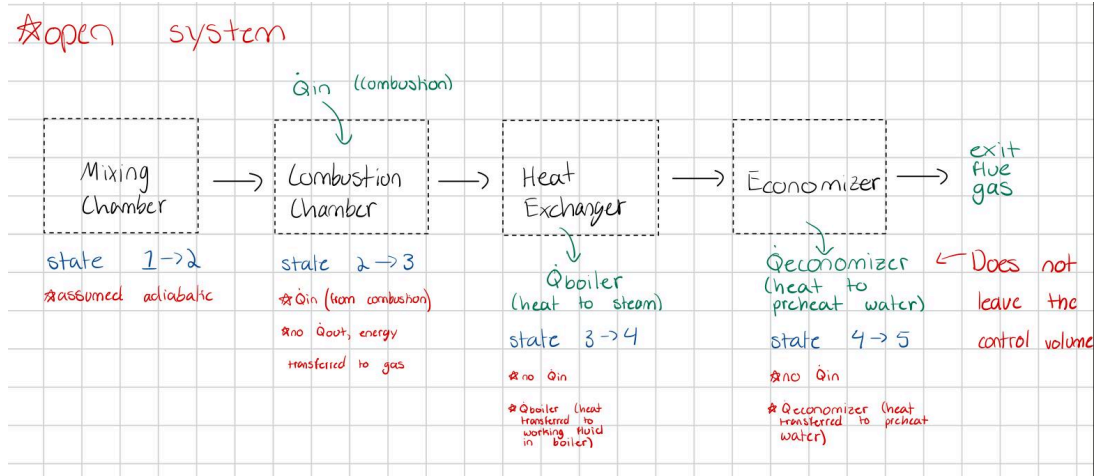 ☆open system
Q̇in (combustion)
Mixing
Chamber
Combustion
Chamber
Heat
Exchanger
Economizer
exit
flue
gas
state 1→2
☆assumed adiabatic
state 2→3
☆Q̇in (from combustion)
☆no Q̇out, energy
transferred to gas
Q̇boiler
(heat to steam)
state 3→4
☆no Q̇in
☆Q̇boiler (heat
transferred to
working fluid
in boiler)
Q̇economizer
(heat to
preheat water)
state 4→5
☆no Q̇in
☆Q̇economizer (heat
transferred to preheat
water)
← Does not
leave the
control volume